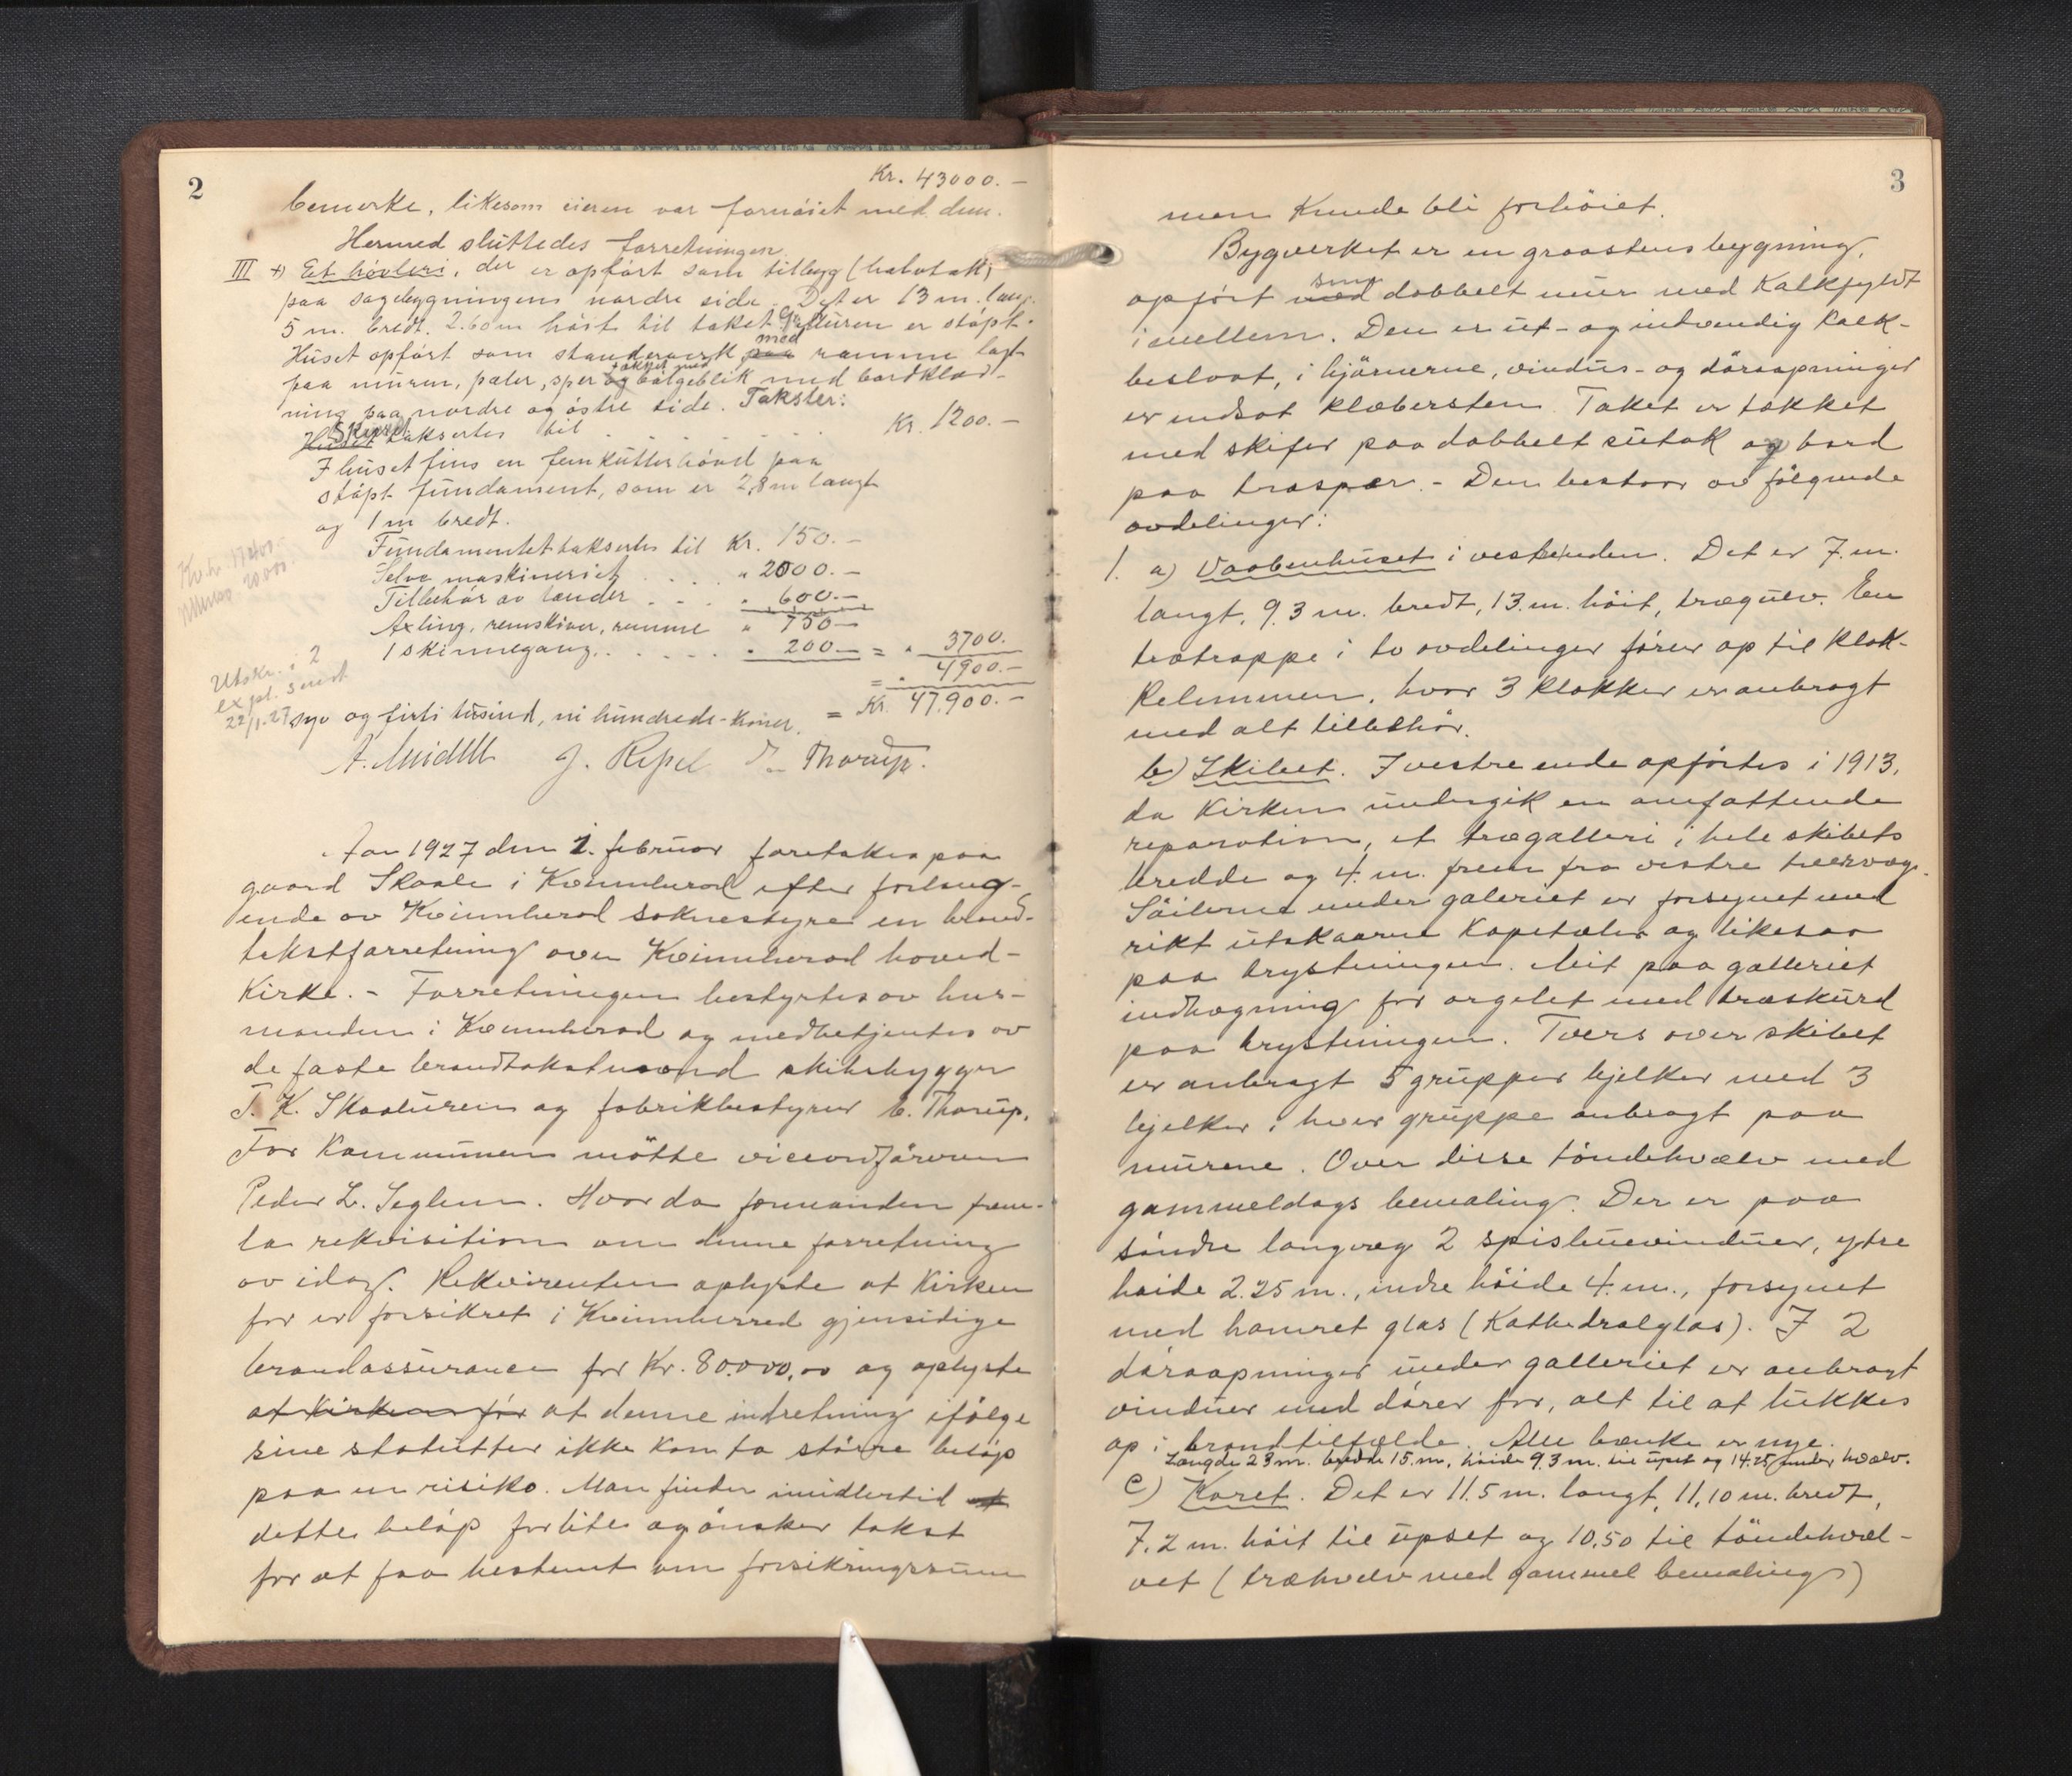 2
Kr. 43000.-
bemerke, likesom eieren var fornöiet med den.
Hermed sluttedes forretningen.
III +) Et hövleri, der er opfört som tilbyg (halvtak)
paa sagbygningens nordre side. Det er 13 m. lang,
5 m. bredt. 2.60 m höit til taket. Grundmuren er stöpt.
Huset opfört som standerverk med paa ramme lagt
paa muren, pæler, sper og tækket med bölgeblik med bordklæd-
ning paa nordre og östre side. Takster:
Huset Skuret takseres til . . . . . . . Kr. 1200.-
I huset fins en femkutterhövel paa
stöpt fundament, som er 2,8 m langt
og 1 m bredt.
Fundamentet takseres til Kr. 150.-
Selve maskineriet . . . . " 2000.-
Tilbehör av lænder . . . " 600.-
Axling, remskiver, remme " 750-
1 skinnegang . . . . . " 200.- = " 3700.
= " 4900.-
syv og firti tusind, ni hundrede-kroner. = Kr. 47.900.-
Utskr. i 2
expl. sendt
22/1-27
J. Thorup.
Aar 1927 den 1. februar foretokes paa
gaard Skaale i Kvinnherad efter forlang-
ende av Kvinnherad soknestyre en brand-
takstforretning over Kvinnherad hoved-
Kirke. - Forretningen bestyrtes av lens-
manden i Kvinnherad og medbetjentes av
de faste brandtakstmænd skibsbygger
T. K. Skaaluren og fabrikbestyrer C. Thorup.
For Kommunen mötte viceordföreren
Peder L. Seglem. Hvorda formanden frem-
la rekvisition om denne forretning
av idag. Rekvirenten oplyste at Kirken
för er forsikret i Kvinnherred gjensidige
brandassurance for Kr. 80.000,00 og oplyste
at Kirken för at denne indretning ifölge
sine statutter ikke kan ta större belöp
paa en risiko. Man finder imidlertid at
dette belöp for lite og önsker takst
for at faa bestemt om forsikringssum
3
men kunde bli forhöiet.
Bygverket er en graastensbygning,
opfört med som dobbelt mur med Kalkfyldt
imellem. Den er ut- og indvendig kalk-
beslaat, i hjörnerne, vindus- og döraapninger
er indsat klæbersten. Taket er tækket
med skifer paa dobbelt sutak og bord
paa træspær. - Den bestaar av fölgende
avdelinger:
1. a) Vaabenhuset i vestenden. Det er 7. m.
langt, 9.3 m. bredt, 13. m. höit, trægulv. En
trætrappe i to avdelinger förer op til klok-
kelemmen, hvor 3 klokker er anbragt
med alt tilbehör.
b) Skibet. I vestre ende opförtes i 1913,
da Kirken undergik en omfattende
reparation, et trægalleri i hele skibets
bredde og 4. m. frem fra vestre tverveg.
Söilerne under galeriet er forsynet med
rikt utskaarne Kapitæler og likesaa
paa brystningen. Mit paa galleriet
indhegning for orgelet med træskurd
paa brystningen. Tvers over skibet
er anbragt 5 grupper bjelker med 3
bjelker i hver gruppe anbragt paa
murene. Over disse töndehvælv med
gammeldags bemaling. Der er paa
söndre langveg 2 spisbuevinduer, ytre
höide 2.25 m., indre höide 4. m., forsynet
med hamret glas (Kathedralglas). I 2
döraapninger under galleriet er anbragt
vinduer med dörer for, alt til at lukkes
op i brandtilfælde. Alle bænke er nye.
Længde 23 m. bredde 15. m, höide 9.3 m. til upset og 14.25 under hvælv.
c) Koret. Det er 11.5 m. langt, 11,10 m. bredt,
7.2 m. höit til upset og 10.50 til töndehvæl-
vet (træhvelv med gammel bemaling)